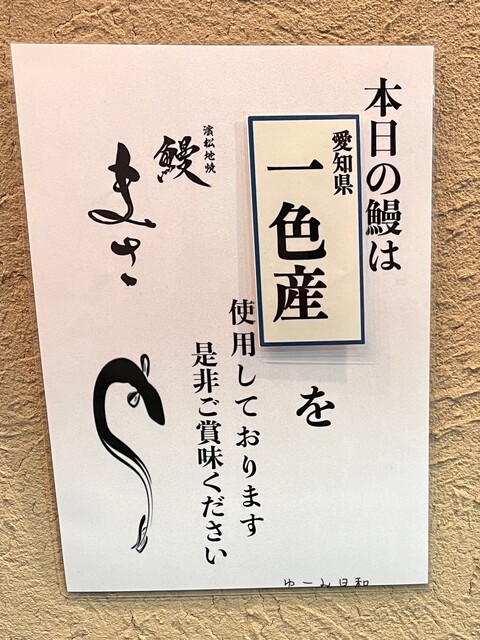 本日の鰻は
愛知県
一色産
を
使用しております
是非ご賞味ください
濱松地焼
鰻
まさ
ゆーみ日和